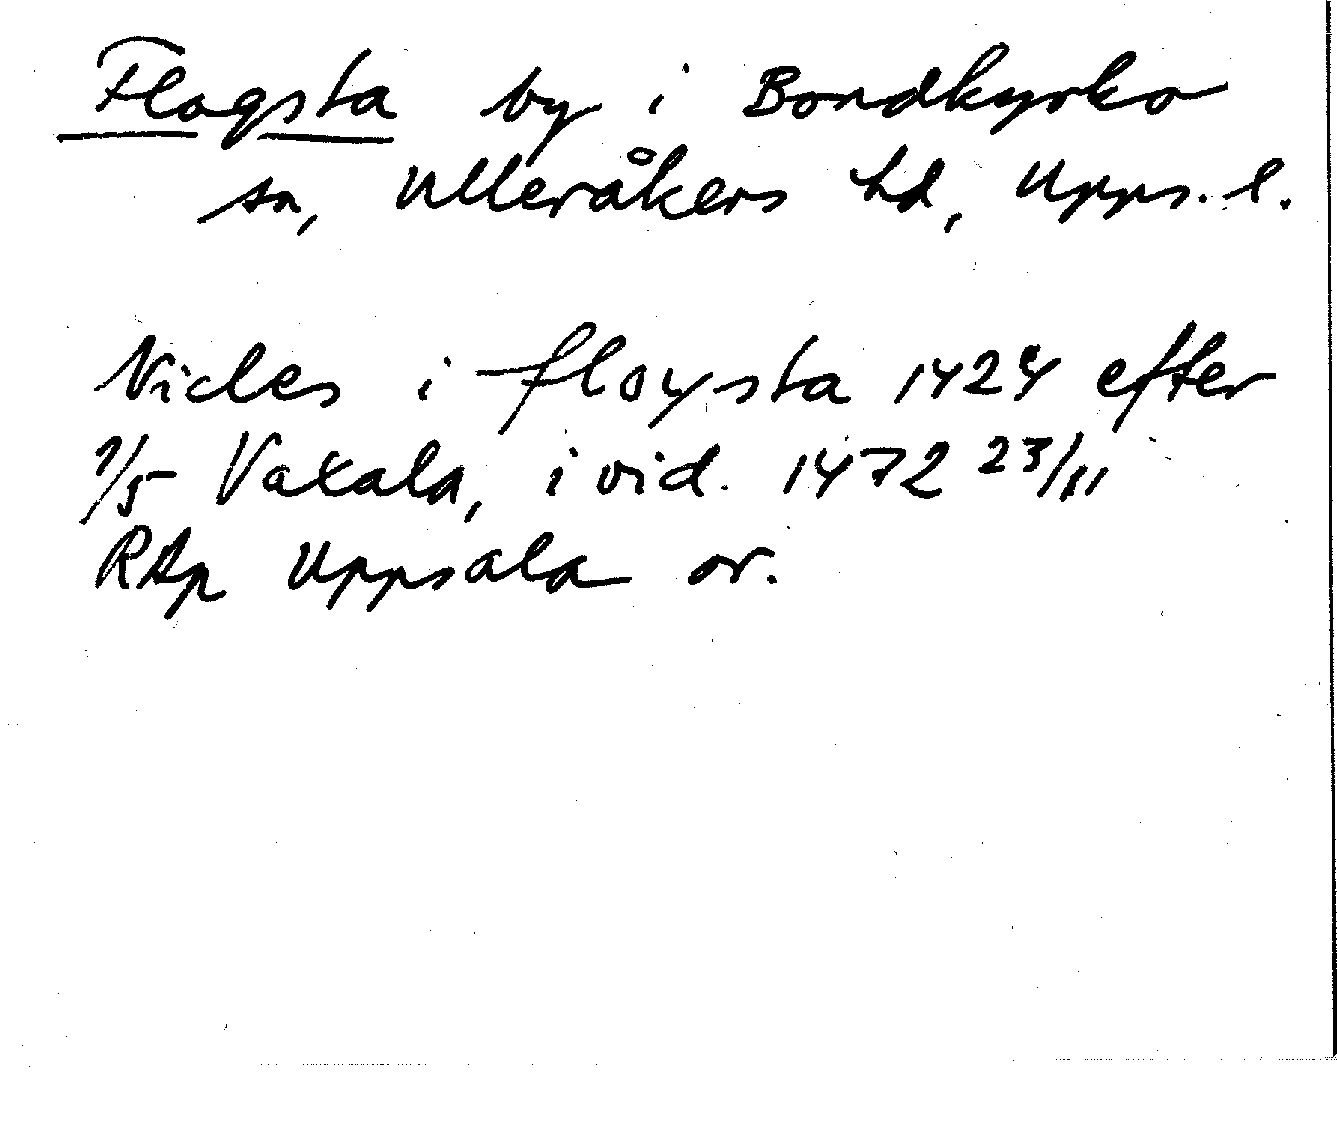 Flogsta by i Bondkyrko
sn, Ulleråkers hd, Upps. l.
Nicles i floysta 1424 efter
1/5 Vaxala, i vid. 1472 23/11
RAp Uppsala or.